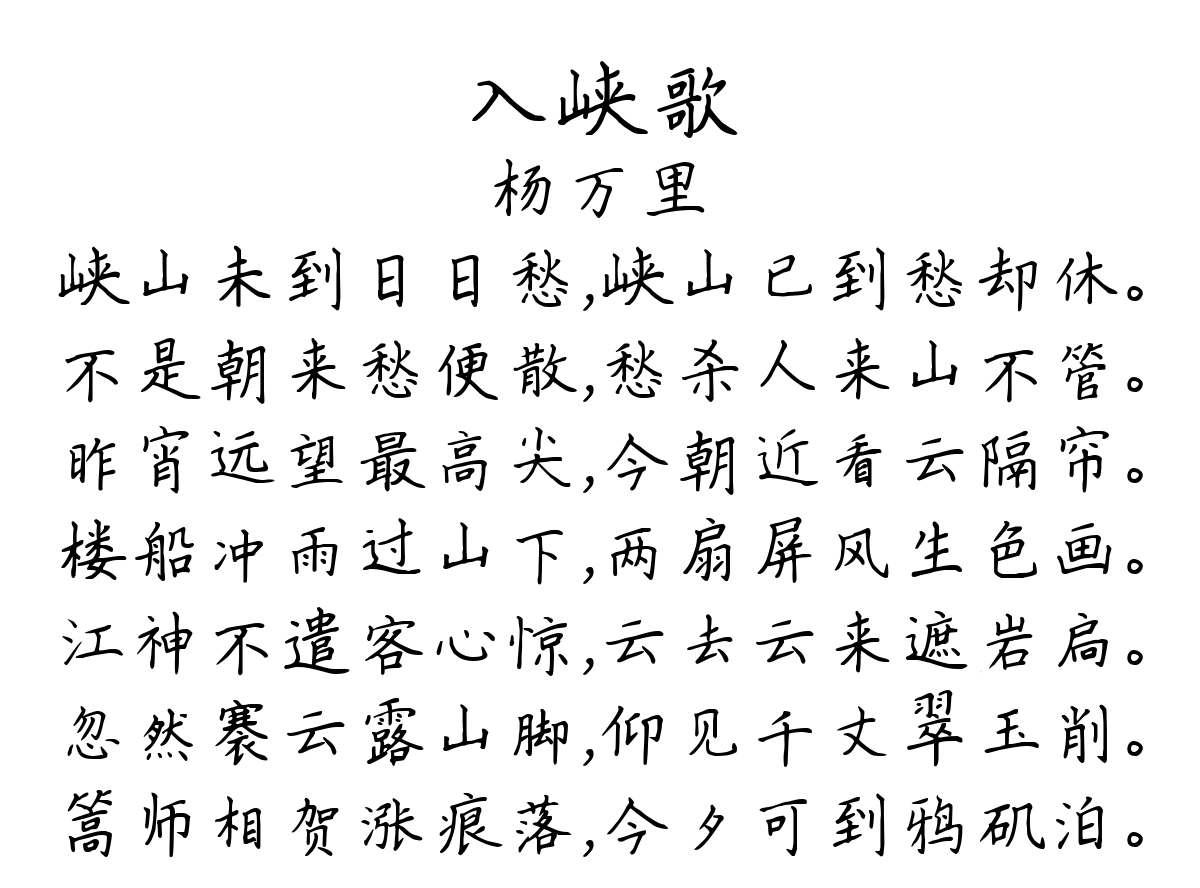 入峡歌
杨万里
峡山未到日日愁,峡山已到愁却休。
不是朝来愁便散,愁杀人来山不管。
昨宵远望最高尖,今朝近看云隔帘。
楼船冲雨过山下,两扇屏风生色画。
江神不遣客心惊,云去云来遮岩扃。
忽然褰云露山脚,仰见千丈翠玉削。
篙师相贺涨痕落,今夕可到鸦矶泊。